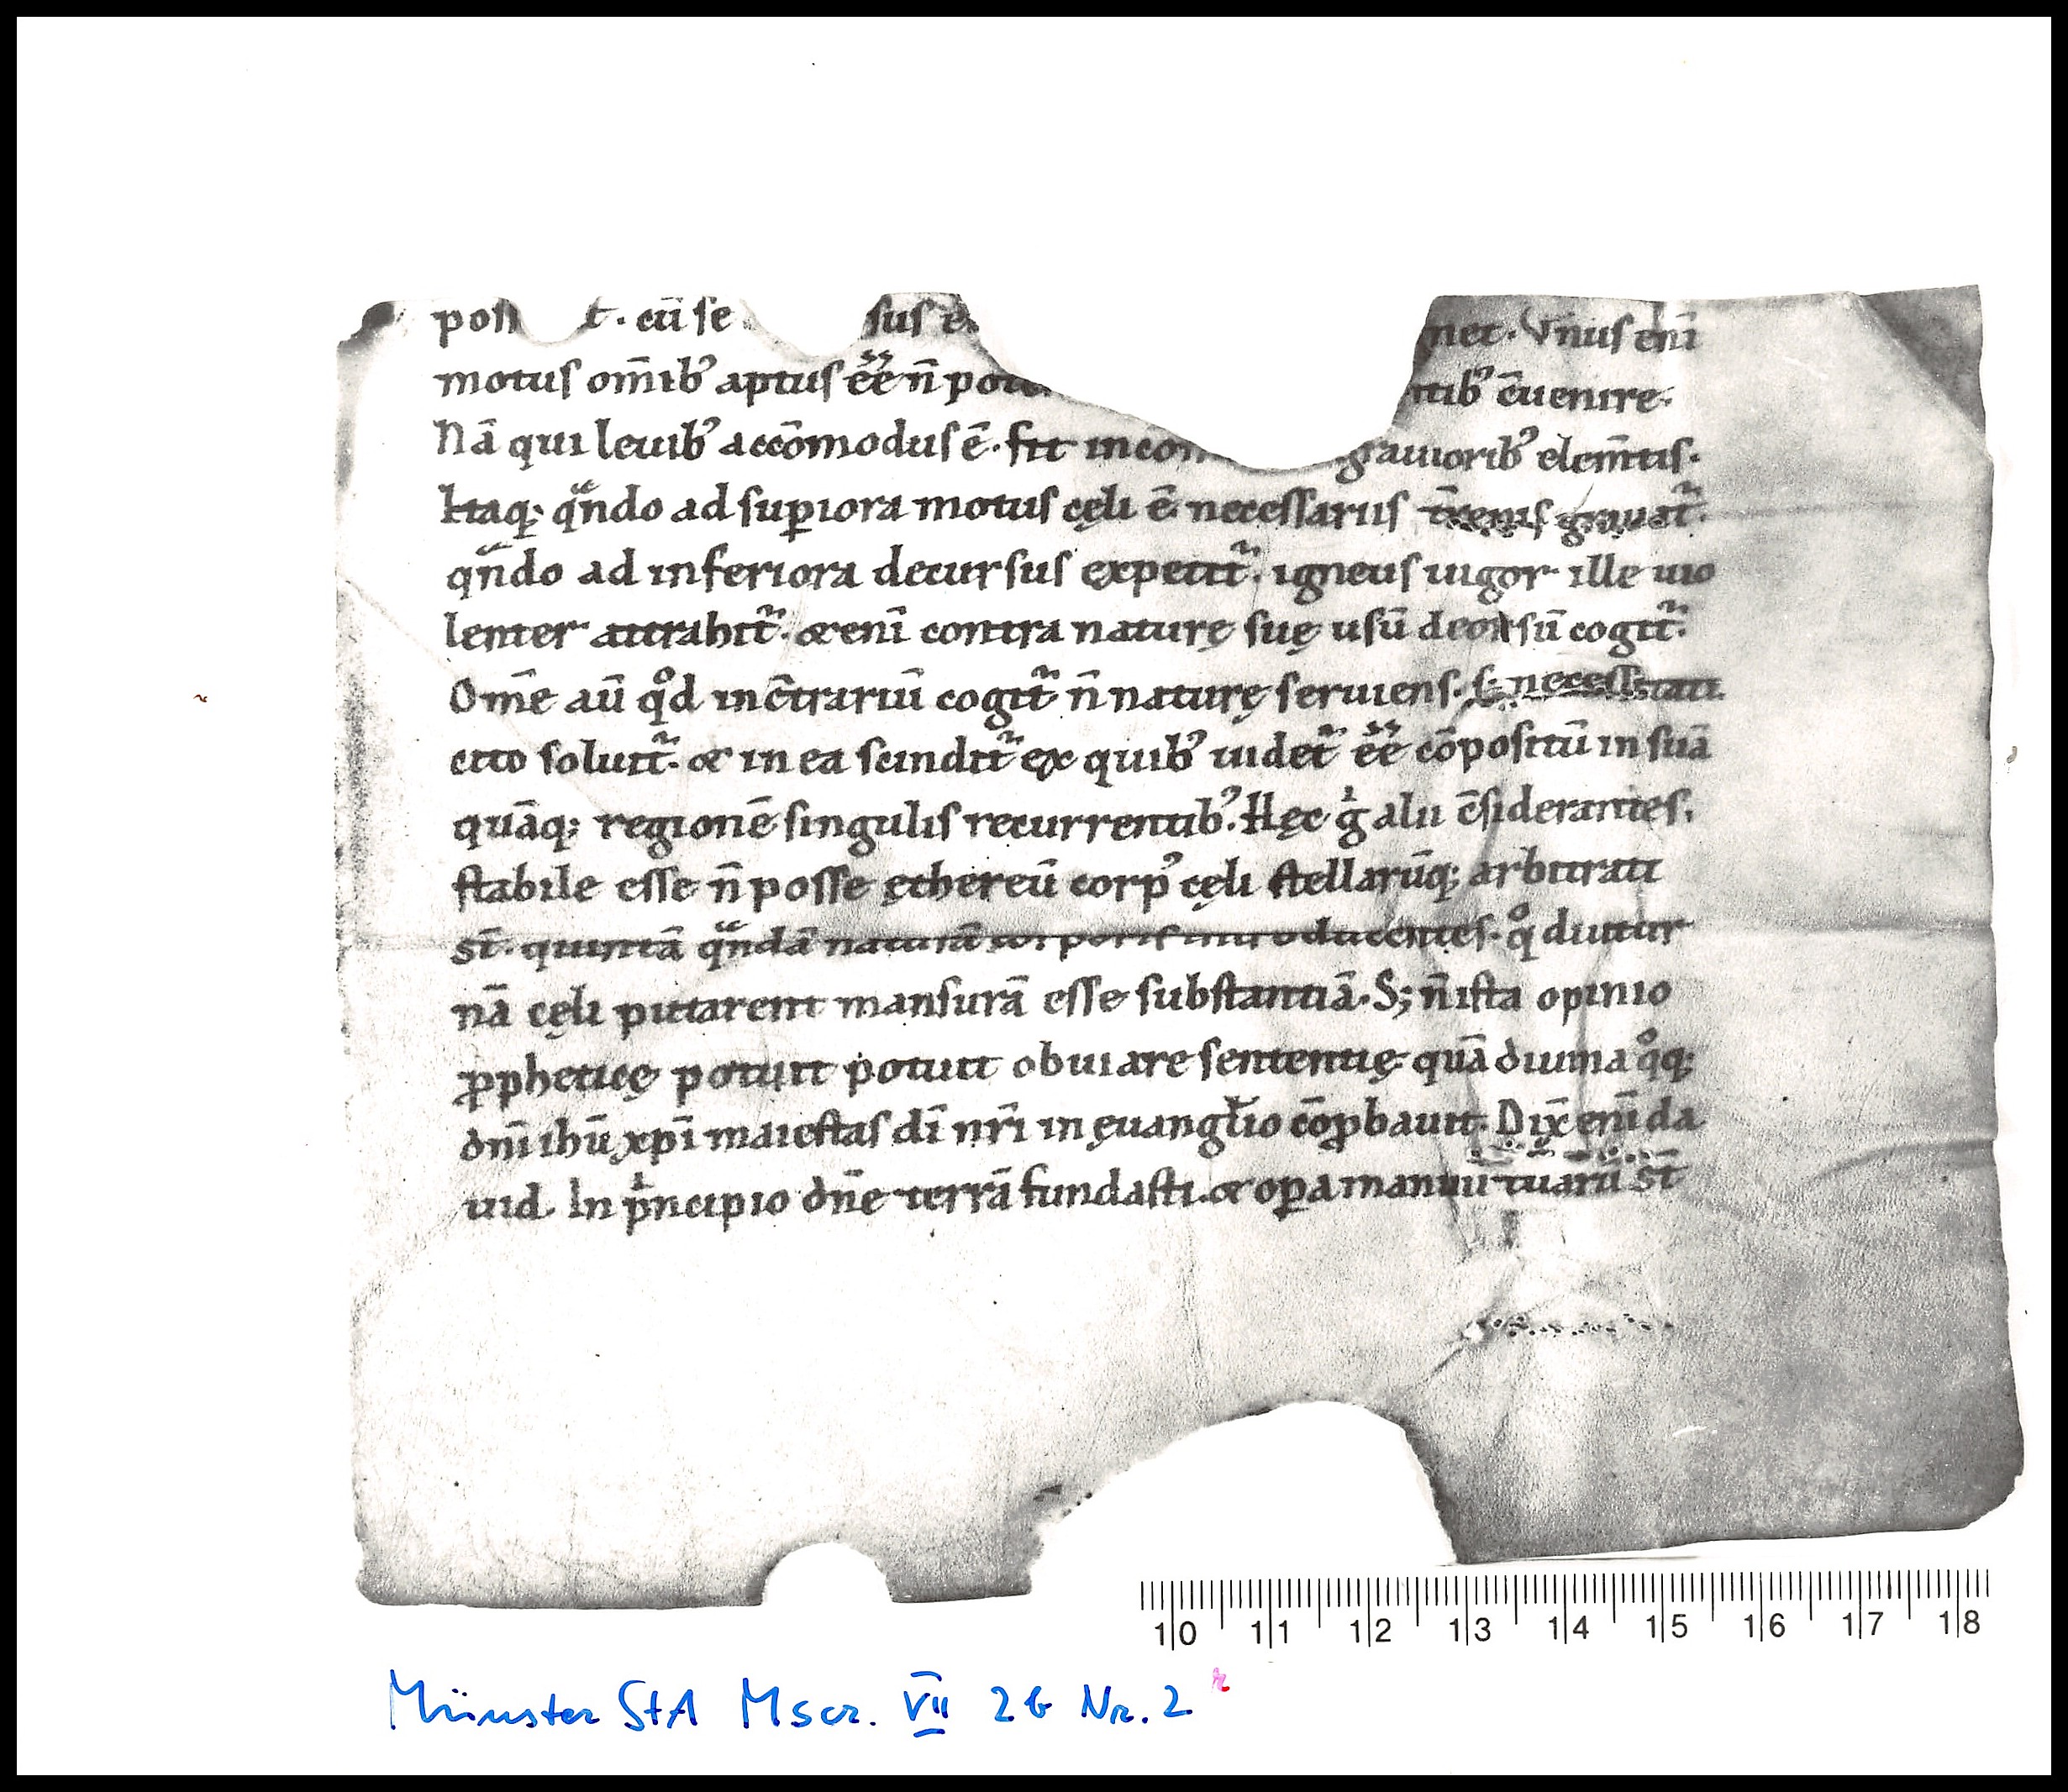 pos t. cū se sus ē. net. Vnus eni̅
motus om̅ib᾽ aptus ēē n̅ pote tib᾽ c̅uenire.
Nā qui leuib᾽ accōmodus ē. fit incon grauiorib᾽ elem̅tis.
Itaq; qᵃn̅do ad sup̲iora motus cęli ē necessarius t̅renis grauat᷑.
qᵃn̅do ad inferiora decursus expetit᷑. igneus uigor ille uio
lenter attrahit᷑. & eni̅ contra naturę suę usū deorsū cogit᷑.
Om̅e aū qͦd in c̅trariū cogit᷑ n̅ naturę seruiens. s; necessitati.
cito soluit᷑. & in ea scindit᷑ ex quib᾽ uidet᷑ ēē cōpositū in suā
quāq; regionē singulis recurrentib᾽. Hęc gⁱ alii c̅siderantes.
stabile esse n̅ posse ęthereū corp᾽ cęli stellarūq; arbitrati
st̅. quintā qᵃn̅dā naturā corporis introducentes. qͦ diutur
nā cęli putarent mansurā esse substantiā. S; n̅ ista opinio
ꝓpheticę potuit potuit obuiare sententię. quā diuina qͦq;
dn̅i ihū xp̅i maiestas di̅ nr̅i in ęuanglio cōꝓbauit. Dix̅ eni̅ da
uid. In pⁱncipio dn̅e terrā fundasti. & op̲a manuū tuarū st̅
10 11 12 13 14 15 16 17 18
Münster StA Mscr. VII 2b Nr. 2 r